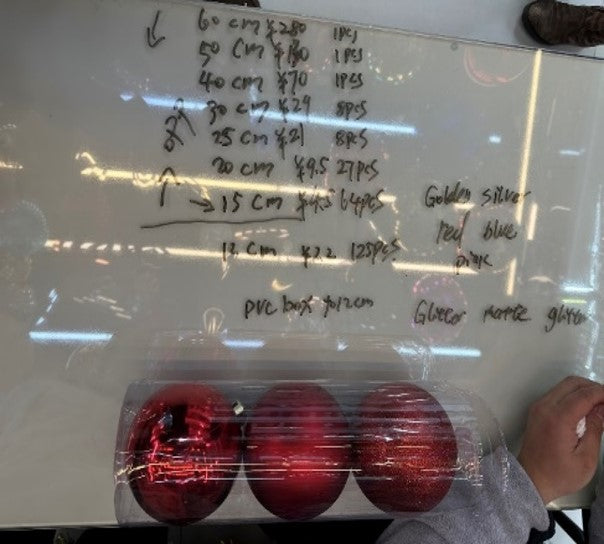 60 cm ¥280 1pcs
50 cm ¥130 1pcs
40 cm ¥70 1pcs
30 cm ¥29 8pcs
25 cm ¥21 8pcs
20 cm ¥9.5 27pcs
15 cm ¥4.5 64pcs
12 cm ¥2.2 125pcs
Golden silver
red blue
pink
pvc box
12cm
Glitter